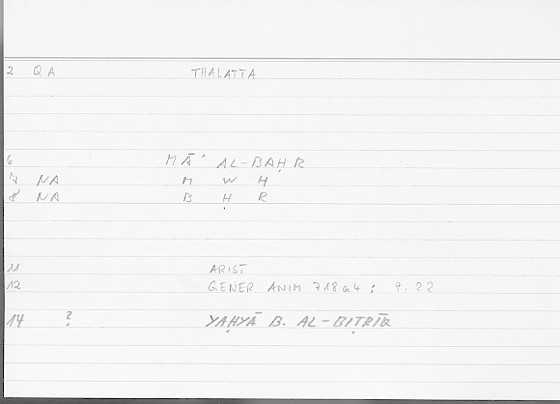 2 QA THALATTA
6 MĀʾ AL-BAḤR
7 NA M W H
8 NA B Ḥ R
11 ARIST
12 GENER ANIM 718a4; 9.22
14 ? YAḤYĀ B. AL-BIṬRĪQ